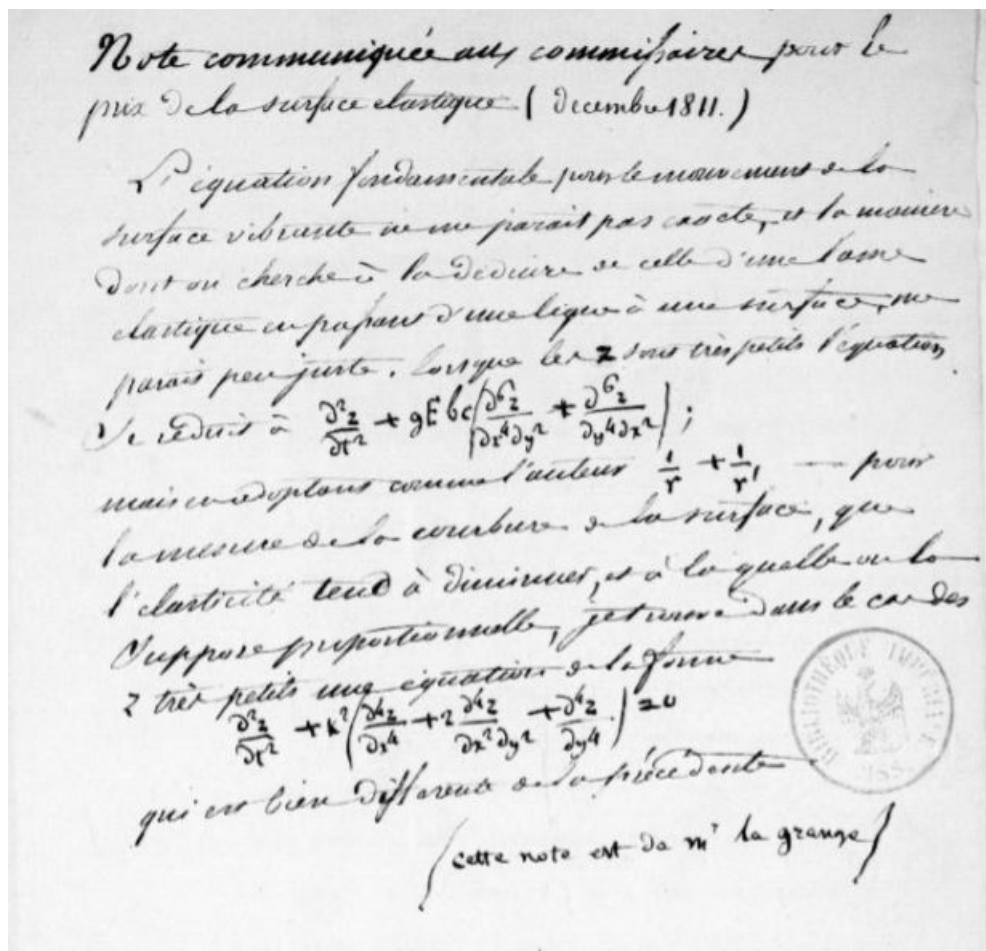 Note communiquée aux commissaires pour le
prix de la surface elastique ( decembre 1811. )
L'équation fondamentale pour le mouvement de la
surface vibrante ne me parait pas exacte, et la manière
dont on cherche à la déduire de celle d'une lame
elastique en passant d'une ligne à une surface, me
parait peu juste. lorsque les z sont très petits l'équation
se réduit à ∂²z/∂t² + gEbc(∂⁶z/∂x⁴∂y² + ∂⁶z/∂y⁴∂x²) ;
mais en adoptant comme l'auteur 1/r + 1/r, — pour
la mesure de la courbure de la surface, que
l'elasticité tend à diminuer, et à laquelle on la
suppose proportionnelle, je trouve dans le cas des
z très petits une équation de la forme
∂²z/∂t² + k²(∂⁴z/∂x⁴ + 2 ∂⁴z/∂x²∂y² + ∂⁴z/∂y⁴) = 0
qui est bien differente de la précédente
(cette note est de mʳ la grange)
BIBLIOTHÈQUE IMPÉRIALE